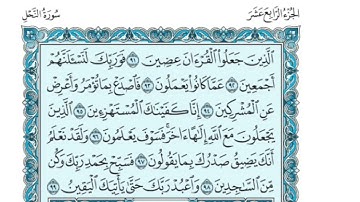 الجزء الرابع عشر
سورة النحل
ٱلَّذِينَ جَعَلُوا۟ ٱلْقُرْءَانَ عِضِينَ ٩١ فَوَرَبِّكَ لَنَسْـَٔلَنَّهُمْ
أَجْمَعِينَ ٩٢ عَمَّا كَانُوا۟ يَعْمَلُونَ ٩٣ فَٱصْدَعْ بِمَا تُؤْمَرُ وَأَعْرِضْ
عَنِ ٱلْمُشْرِكِينَ ٩٤ إِنَّا كَفَيْنَـٰكَ ٱلْمُسْتَهْزِءِينَ ٩٥ ٱلَّذِينَ
يَجْعَلُونَ مَعَ ٱللَّهِ إِلَـٰهًا ءَاخَرَ فَسَوْفَ يَعْلَمُونَ ٩٦ وَلَقَدْ نَعْلَمُ
أَنَّكَ يَضِيقُ صَدْرُكَ بِمَا يَقُولُونَ ٩٧ فَسَبِّحْ بِحَمْدِ رَبِّكَ وَكُن
مِّنَ ٱلسَّـٰجِدِينَ ٩٨ وَٱعْبُدْ رَبَّكَ حَتَّىٰ يَأْتِيَكَ ٱلْيَقِينُ ٩٩